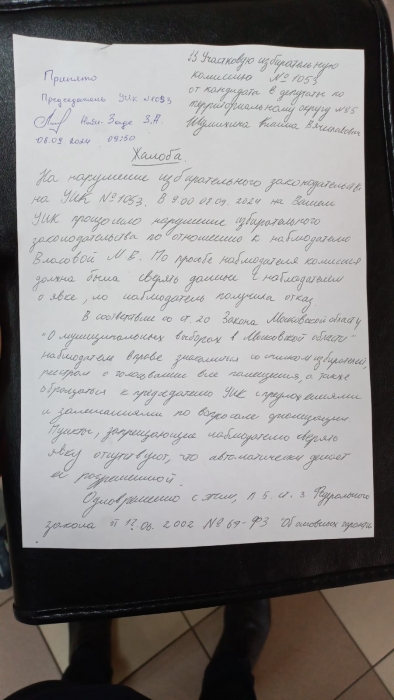 Принято
Председатель УИК №1053
Заде З.А.
08.09.2024 09:50
В Участковую избирательную
комиссию № 1053
от кандидата в депутаты по
территориальному округу №55
Вячеславович
Жалоба.
На нарушение избирательного законодательства
на УИК №1053. В 9:00 07.09.2024 на
УИК произошло нарушение избирательного
законодательства по отношению к наблюдателю
Власовой М.Е. По просьбе наблюдателя комиссия
должна была сверять данные с наблюдателем
о явке, но наблюдатель получила отказ
В соответствие со ст. 20 Закона Московской области
"О муниципальных выборах в Московской области"
наблюдатели вправе знакомится со списком избирателей,
реестром о голосовании вне помещения, а также
обращаться к председателю УИК с предложениями
и замечаниями по вопросам организации
Пункты, запрещающие наблюдателю сверять
явку отсутствуют, что автоматически делает
её разрешенной.
Одновременно с этим, п 5. ст. 3 Федерального
закона от 12.06.2002 № 67-ФЗ "Об основных гарантиях